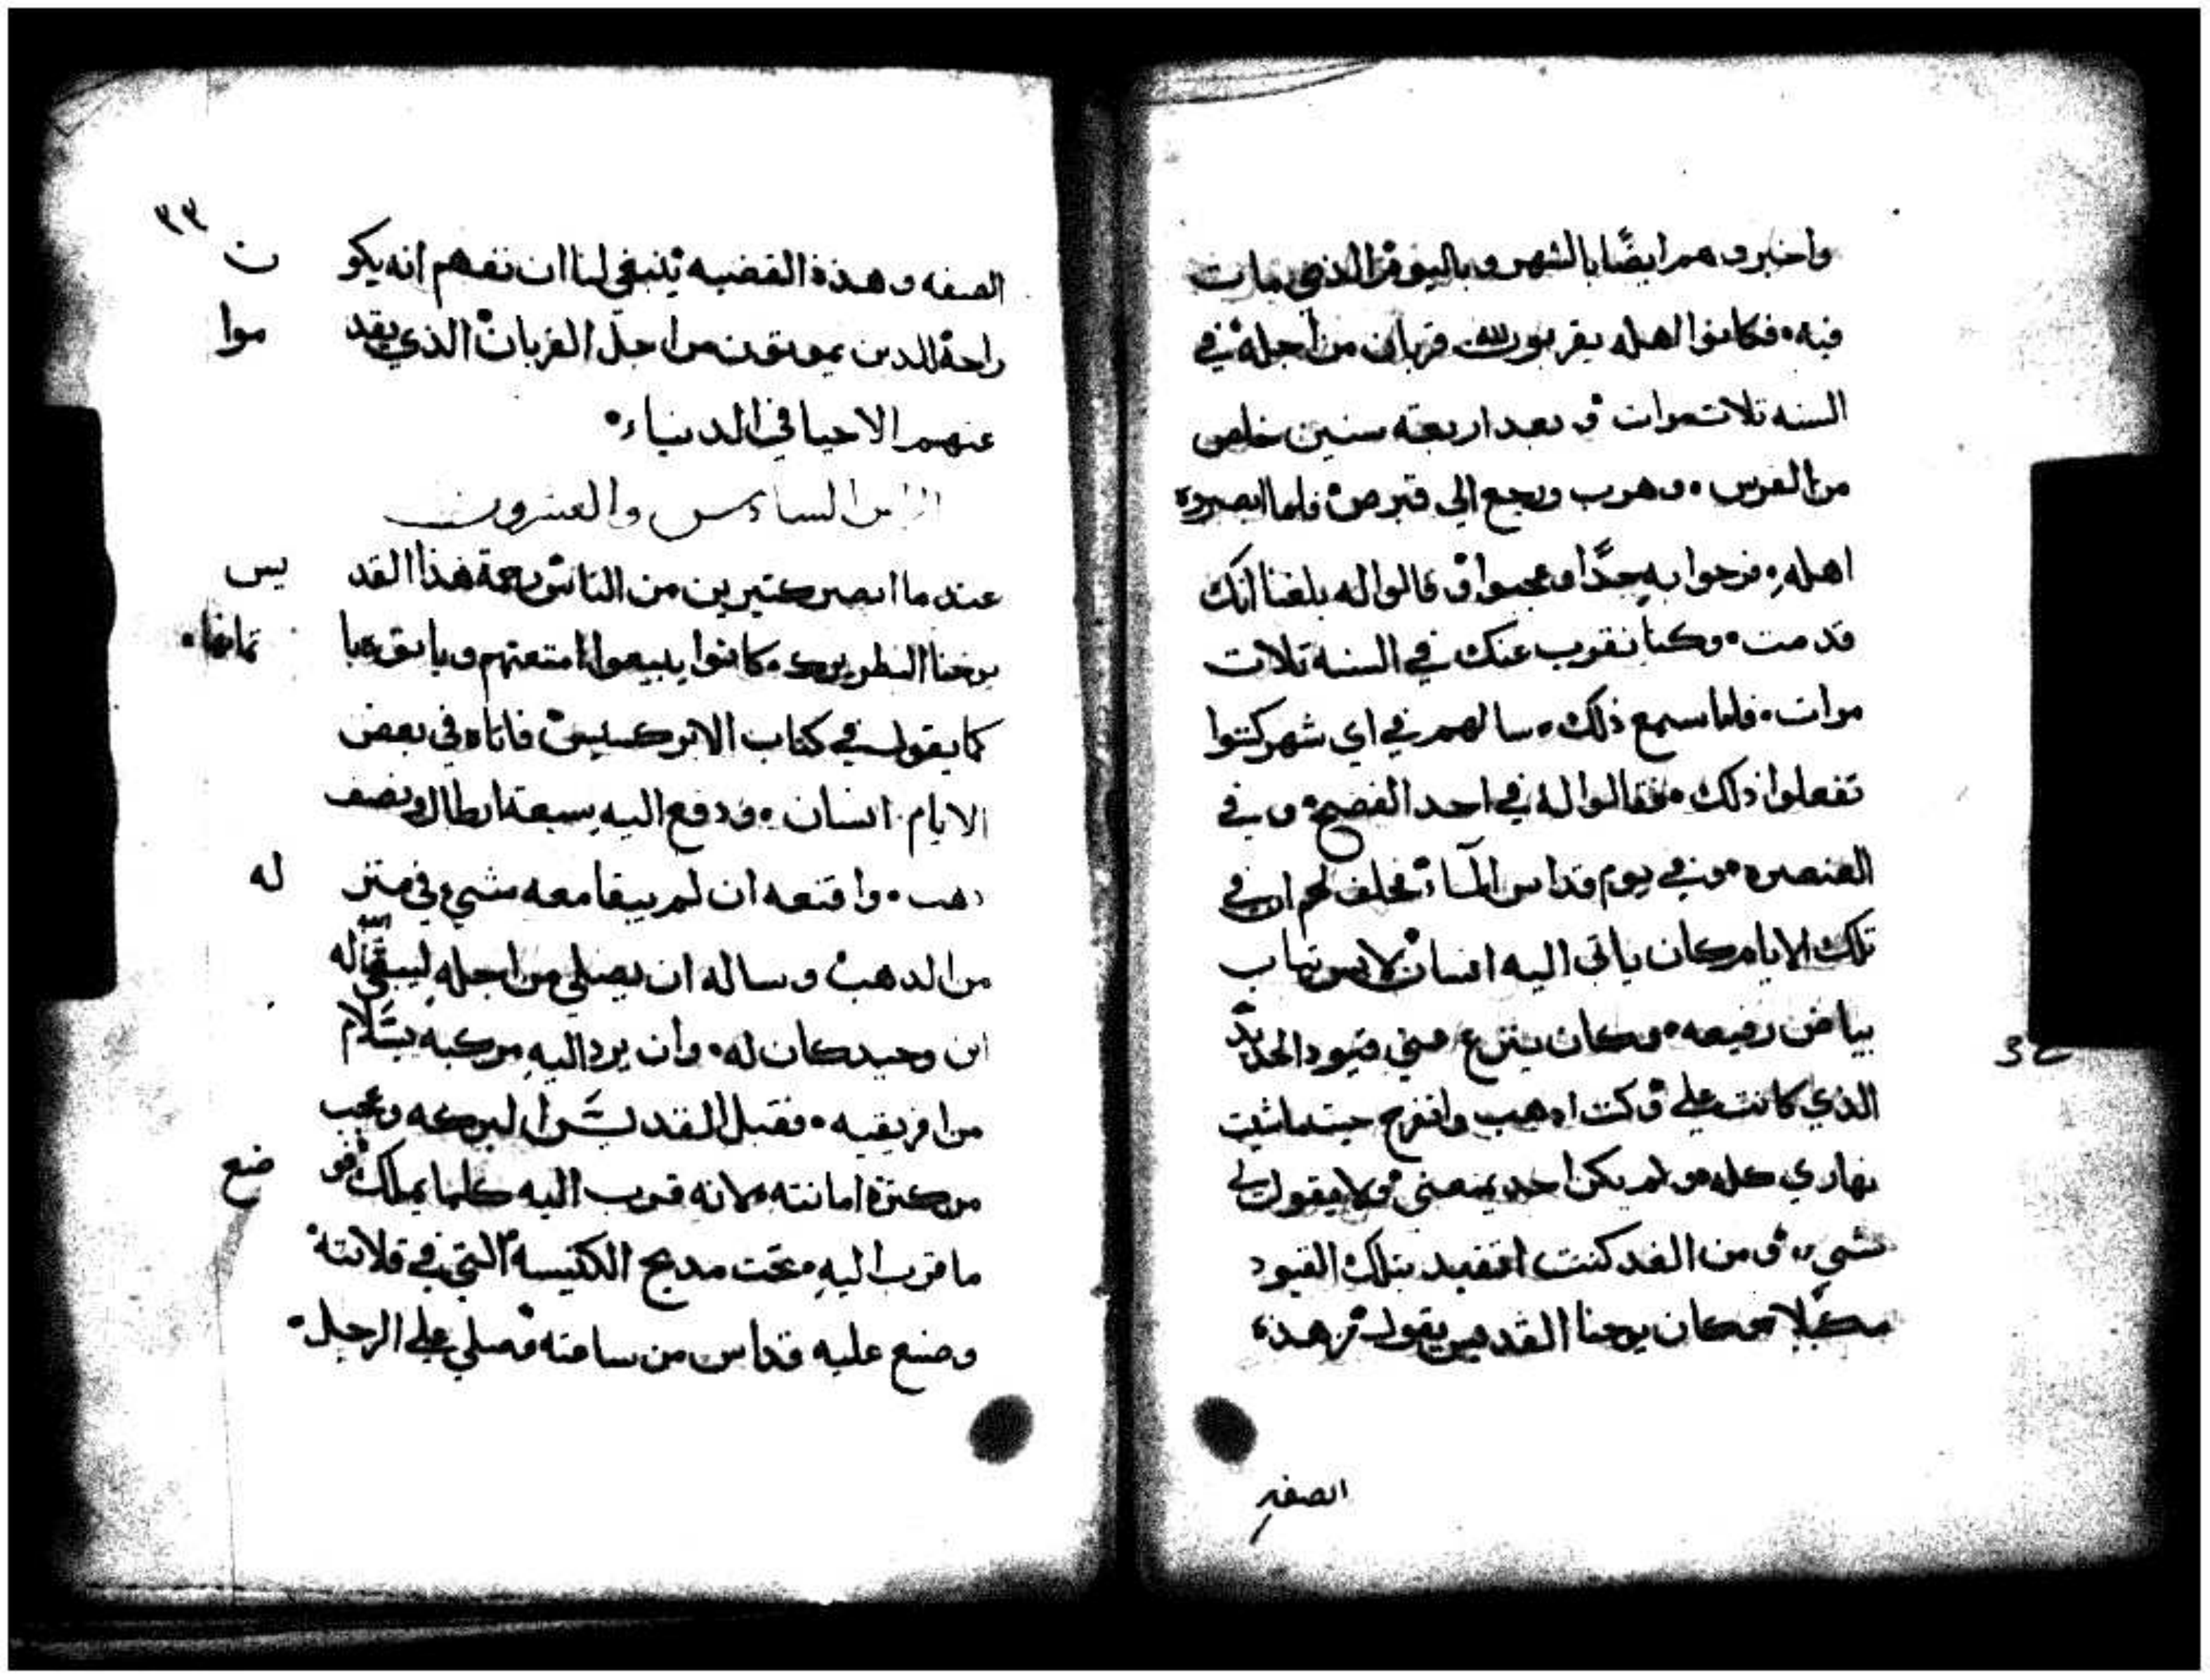 واخبروهم ايضًا بالشهر وباليوم الذي مات
فيه فكانوا اهله يقربون قربان من اجله في
السنه تلات مرات وبعد اربعة سنين خلص
من الفرس وهرب ورجع الي قبرص فلما ابصروه
اهله فرحوا به جدًّا وعجبوا وقالوا له بلغنا انك
قد مت وكنا نقرب عنك في السنه تلات
مرات فلما سمع ذلك سالهم في اي شهر كنتوا
تفعلوا ذلك فقالوا له في احد الفصح وفي
العنصره وفي يوم قداس المآء فحلف لهم ان في
تلك الايام كان ياتي اليه انسان لابس تياب
بياض رفيعه وكان ينزع عني قيود الحديد
الذي كانت علي وكنت ادهب واتفرج حيتما شيت
نهاري كله ولم يكن احد يمنعني ولا يقول لي
شيء ومن الغد كنت اتقيد بتلك القيود
مكبلا فكان يوحنا القديس يقول هده
الصفه
34
٣٣
الصفه وهذه القضيه ينبغي لنا ان نفهم انه يكون
راحة للدين يموتون من اجل القربان الذي يقدموا
عنهم الاحيا في الدنياء
السادس والعشرون
عند ما ابصر كتيرين من الناس رحمة هذا القديس
يوحنا البطريرك كانوا يبيعوا امتعتهم وياتوه باتمانها
كما يقول في كتاب الابركسيس فاتاه في بعض
الايام انسان ودفع اليه سبعة ارطال ونصف
دهب واقنعه ان لم يبقا معه شيء في منزله
من الدهب وساله ان يصلي من اجله ليبقي الله له
ابن وحيد كان له وان يرد اليه مركبه بسَلام
من افريقيه فقبل القديس البركه وعجب
من كترة امانته لانه قرب اليه كلما يملك فوضع
ما قرب اليه تحت مدبح الكنيسه التي في قلايته
وصنع عليه قداس من ساعته وصلي علي الرجل